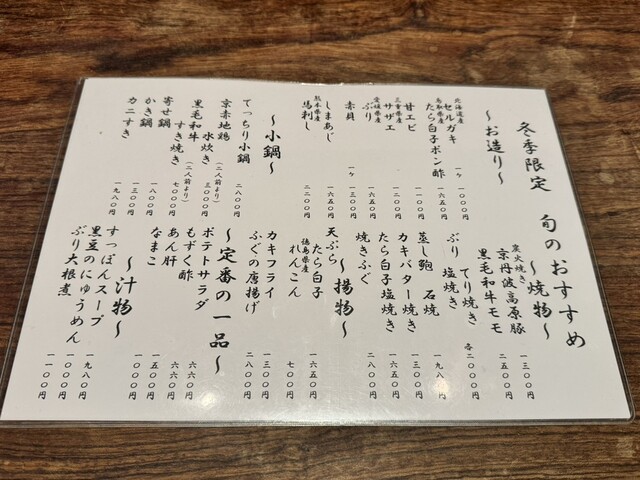 冬季限定 旬のおすすめ
～お造り～
北海道産
セルガキ 一ケ 一〇〇〇円
鳥取県産
たら白子ポン酢 一六五〇円
甘エビ 一一〇〇円
三重県産
サザエ 一二〇〇円
愛媛県産
ぶり 一六五〇円
赤貝 一ケ 一三〇〇円
しまあじ
熊本県産
馬刺し 二二〇〇円
～小鍋～
てっちり小鍋 二八〇〇円
京赤地鶏
水炊き(二人前より) 三〇〇〇円
黒毛和牛
すき焼き(二人前より) 七〇〇〇円
寄せ鍋 一八〇〇円
かき鍋 一三〇〇円
カニすき 一九八〇円
～焼物～
炭火焼き
京丹波高原豚 一三〇〇円
黒毛和牛モモ 二五〇〇円
てり焼き 各二〇〇〇円
ぶり 塩焼き
蒸し鮑 石焼 一九八〇円
カキバター焼き 一三〇〇円
たら白子塩焼き 一六五〇円
焼きふぐ 二八〇〇円
～揚物～
天ぷら
たら白子 一六五〇円
徳島県産
れんこん 七〇〇円
カキフライ 一三〇〇円
ふぐの唐揚げ 二八〇〇円
～定番の一品～
ポテトサラダ 六六〇円
もずく酢 六六〇円
あん肝 一五〇〇円
なまこ 一〇〇〇円
～汁物～
すっぽんスープ 一九八〇円
黒豆のにゅうめん 一〇〇〇円
ぶり大根煮 一一〇〇円